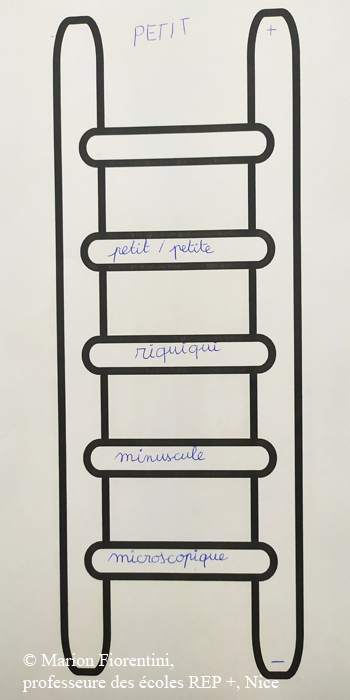 PETIT
+
petit / petite
riquiqui
minuscule
microscopique
-
© Marion Fiorentini,
professeure des écoles REP +, Nice